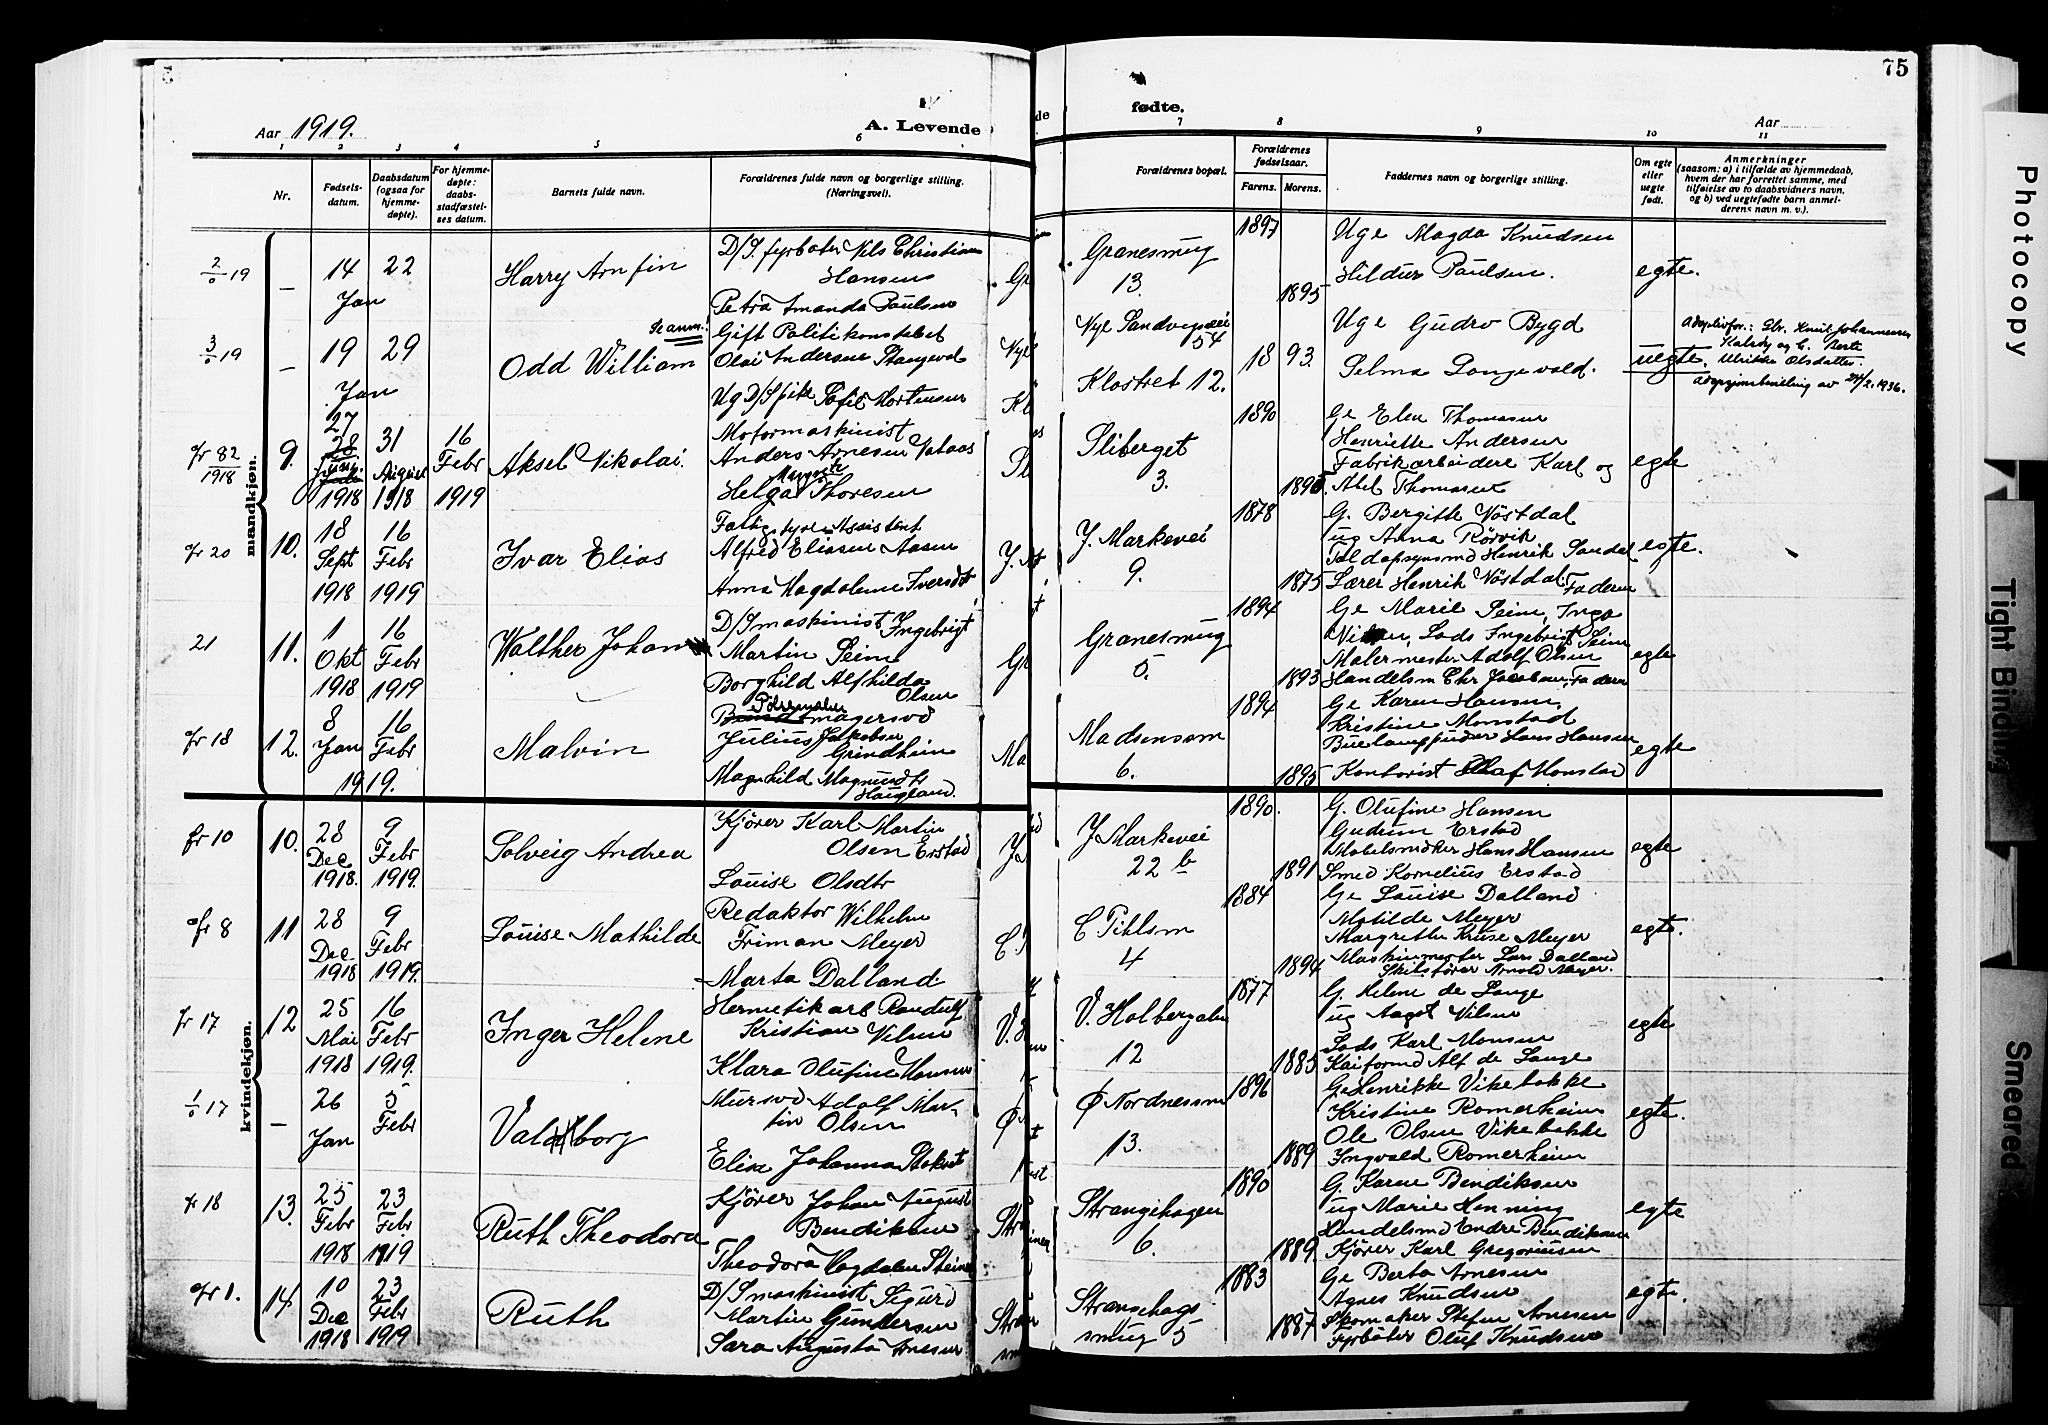 75
Aar 1919.
A. Levende
fødte.
Aar
1 2 3 4 5 6
7 8 9 10 11
Nr.
Fødsels-
datum.
Daabsdatum
(ogsaa for
hjemme-
døpte).
For hjemme-
døpte:
daabs-
stadfæstel-
ses datum.
Barnets fulde navn.
Forældrenes fulde navn og borgerlige stilling.
(Næringsvei).
Forældrenes bopæl.
Forældrenes
fødselsaar.
Farens. Morens.
Faddernes navn og borgerlige stilling.
Om egte
eller
uegte
født.
Anmerkninger
(saasom: a) i tilfælde av hjemmedaab,
hvem der har forrettet samme, med
tilføielse av to daabsvidners navn,
og b) ved uegtefødte barn anmel-
derens navn m. v.).
mandkjøn.
2/0 19 – 14 Jan 22 Harry Arnfin
D/S. fyrbøter Nils Christian
Hansen
Petra Amanda Paulsen
Granesmug
13.
1897
1895
Uge Magda Knudsen
Hildur Paulsen.
egte.
3/0 19 – 19 Jan 29 Odd William
Se anm.!
Gift Politikonstabel
Olai Andersen Stangevold
Ug D/S pike Sofie Mortensen
Nye Sandvigsvei
54
Klostret 12.
18 93.
Uge Gudrv Bygd
Selma Langevald.
uegte.
Adoptivfor.: Elv. Knut Johannessen
Kalsøy og h. Berte
Ulrikke Olsdatter
Adopsjonsbeviling av 24/2. 1936.
fr 82
1918
9.
27
28
1918
31
August
1918
16
Febr
1919
Aksel Nikolai.
Motormaskinist
Anders Arnesen Valaas
Helga Thoresen
Sliberget
3.
1890
1896
Ge Elen Thomasen
Henriette Andersen
Fabrikarbeidere Karl og
Abel Thomasen
egte
fr 20
10.
18
Sept
1918
16
Febr
1919
Ivar Elias
Fattigstyre Assistent
Alfred Eliasen Aasen
Anna Magdalene Iversdt
Y. Markevei
9.
1878
1875
G. Bergitte Nøstdal
ug Anna Rørvik
Toldopsynsmd Henrik Sandal
Lærer Henrik Nøstdal. Faderen
egte.
21
11.
1
Okt
1918
16
Febr
1919
Walther Johan
D/S maskinist Ingebrigt
Martin Seim
Borghild Alfhilda
Olsen
Granesmug
5.
1894
1893
Ge Marie Seim, Inga
Lods Ingebrigt Seim
Malermester Adolf Olsen
Handelsm Chr Jacobsen, Faderen
egte
fr 18
12.
8
Jan
1919.
16
Febr
Malvin
Pølsemaker
magersvd
Julius Jakobsen
Grindheim
Magnhild Magnusdtr
Haugland.
Madsensm
6.
1894
1895
Ge Karen Hansen,
Kristine Monstad
Buelamppudser Hans Hansen
Kontorist Olaf Monstad
egte
kvindekjøn.
fr 10
10.
28
Dec
1918.
9
Febr
1919.
Solveig Andrea
Kjører Karl Martin
Olsen Erstad
Louise Olsdtr
Y Markevei
22 b
1890.
1891
G. Olufine Hansen
Gudrun Erstad
Møbelsnedker Hans Hansen
Smed Kornelius Erstad
egte
fr 8
11
28
Dec
1918
9
Febr
1919.
Louise Mathilde
Redaktør Wilhelm
Friman Meyer
Marta Dalland
C Pihlsm
4
1884
1894
Ge Louise Dalland
Matilde Meyer
Margrethe Kruse Meyer
Maskinmester Lars Dalland
Skibsfører Arnold Meyer.
egte.
fr 17
12
25
Mai
1918
16
Febr
1919.
Inger Helene
Hermetikarb Randulf
Kristian Nilsen
Klara Olufine Hansen
V. Holbergalm
12
1877
1885
G. Helene de Lange
ug Aagot Nilsen
Lods Karl Monsen
Kaiformd Alf de Lange
egte
1/0 17 – 26 Jan 5 Febr Valborg
Mursvd Adolf Mar-
tin Olsen
Elise Johanna
Ø Nordnessm
13.
1896
1889
Ge Henrikke Vikebakke
Kristine Romerheim
Ole Olsen Vikebakke
Ingvald Romerheim
egte.
fr 18
13.
25
Febr
1918
23
Febr
1919
Ruth Theodora
Kjører Johan August
Bendiksen
Theodora Magdalene Steinsen
Strangehagen
6.
1890
1889.
G. Karen Bendiksen
ug Marie Henning
Handelsmd Endre Bendiksen
Kjører Karl Gregoriusen
egte
fr 1.
14.
10
Dec
1918
23
Febr
1919
Ruth
D/S maskinist Sigurd
Martin Gundersen
Sara Augusta Arnesen
Strangehags-
smug 5
1883
1887
Ge Berta Arnesen
Agnes Knudsen
Skomaker Stefen Arnesen
Fyrbøter Oluf Knudsen
egte.
Photocopy
Tight Binding
Smeared